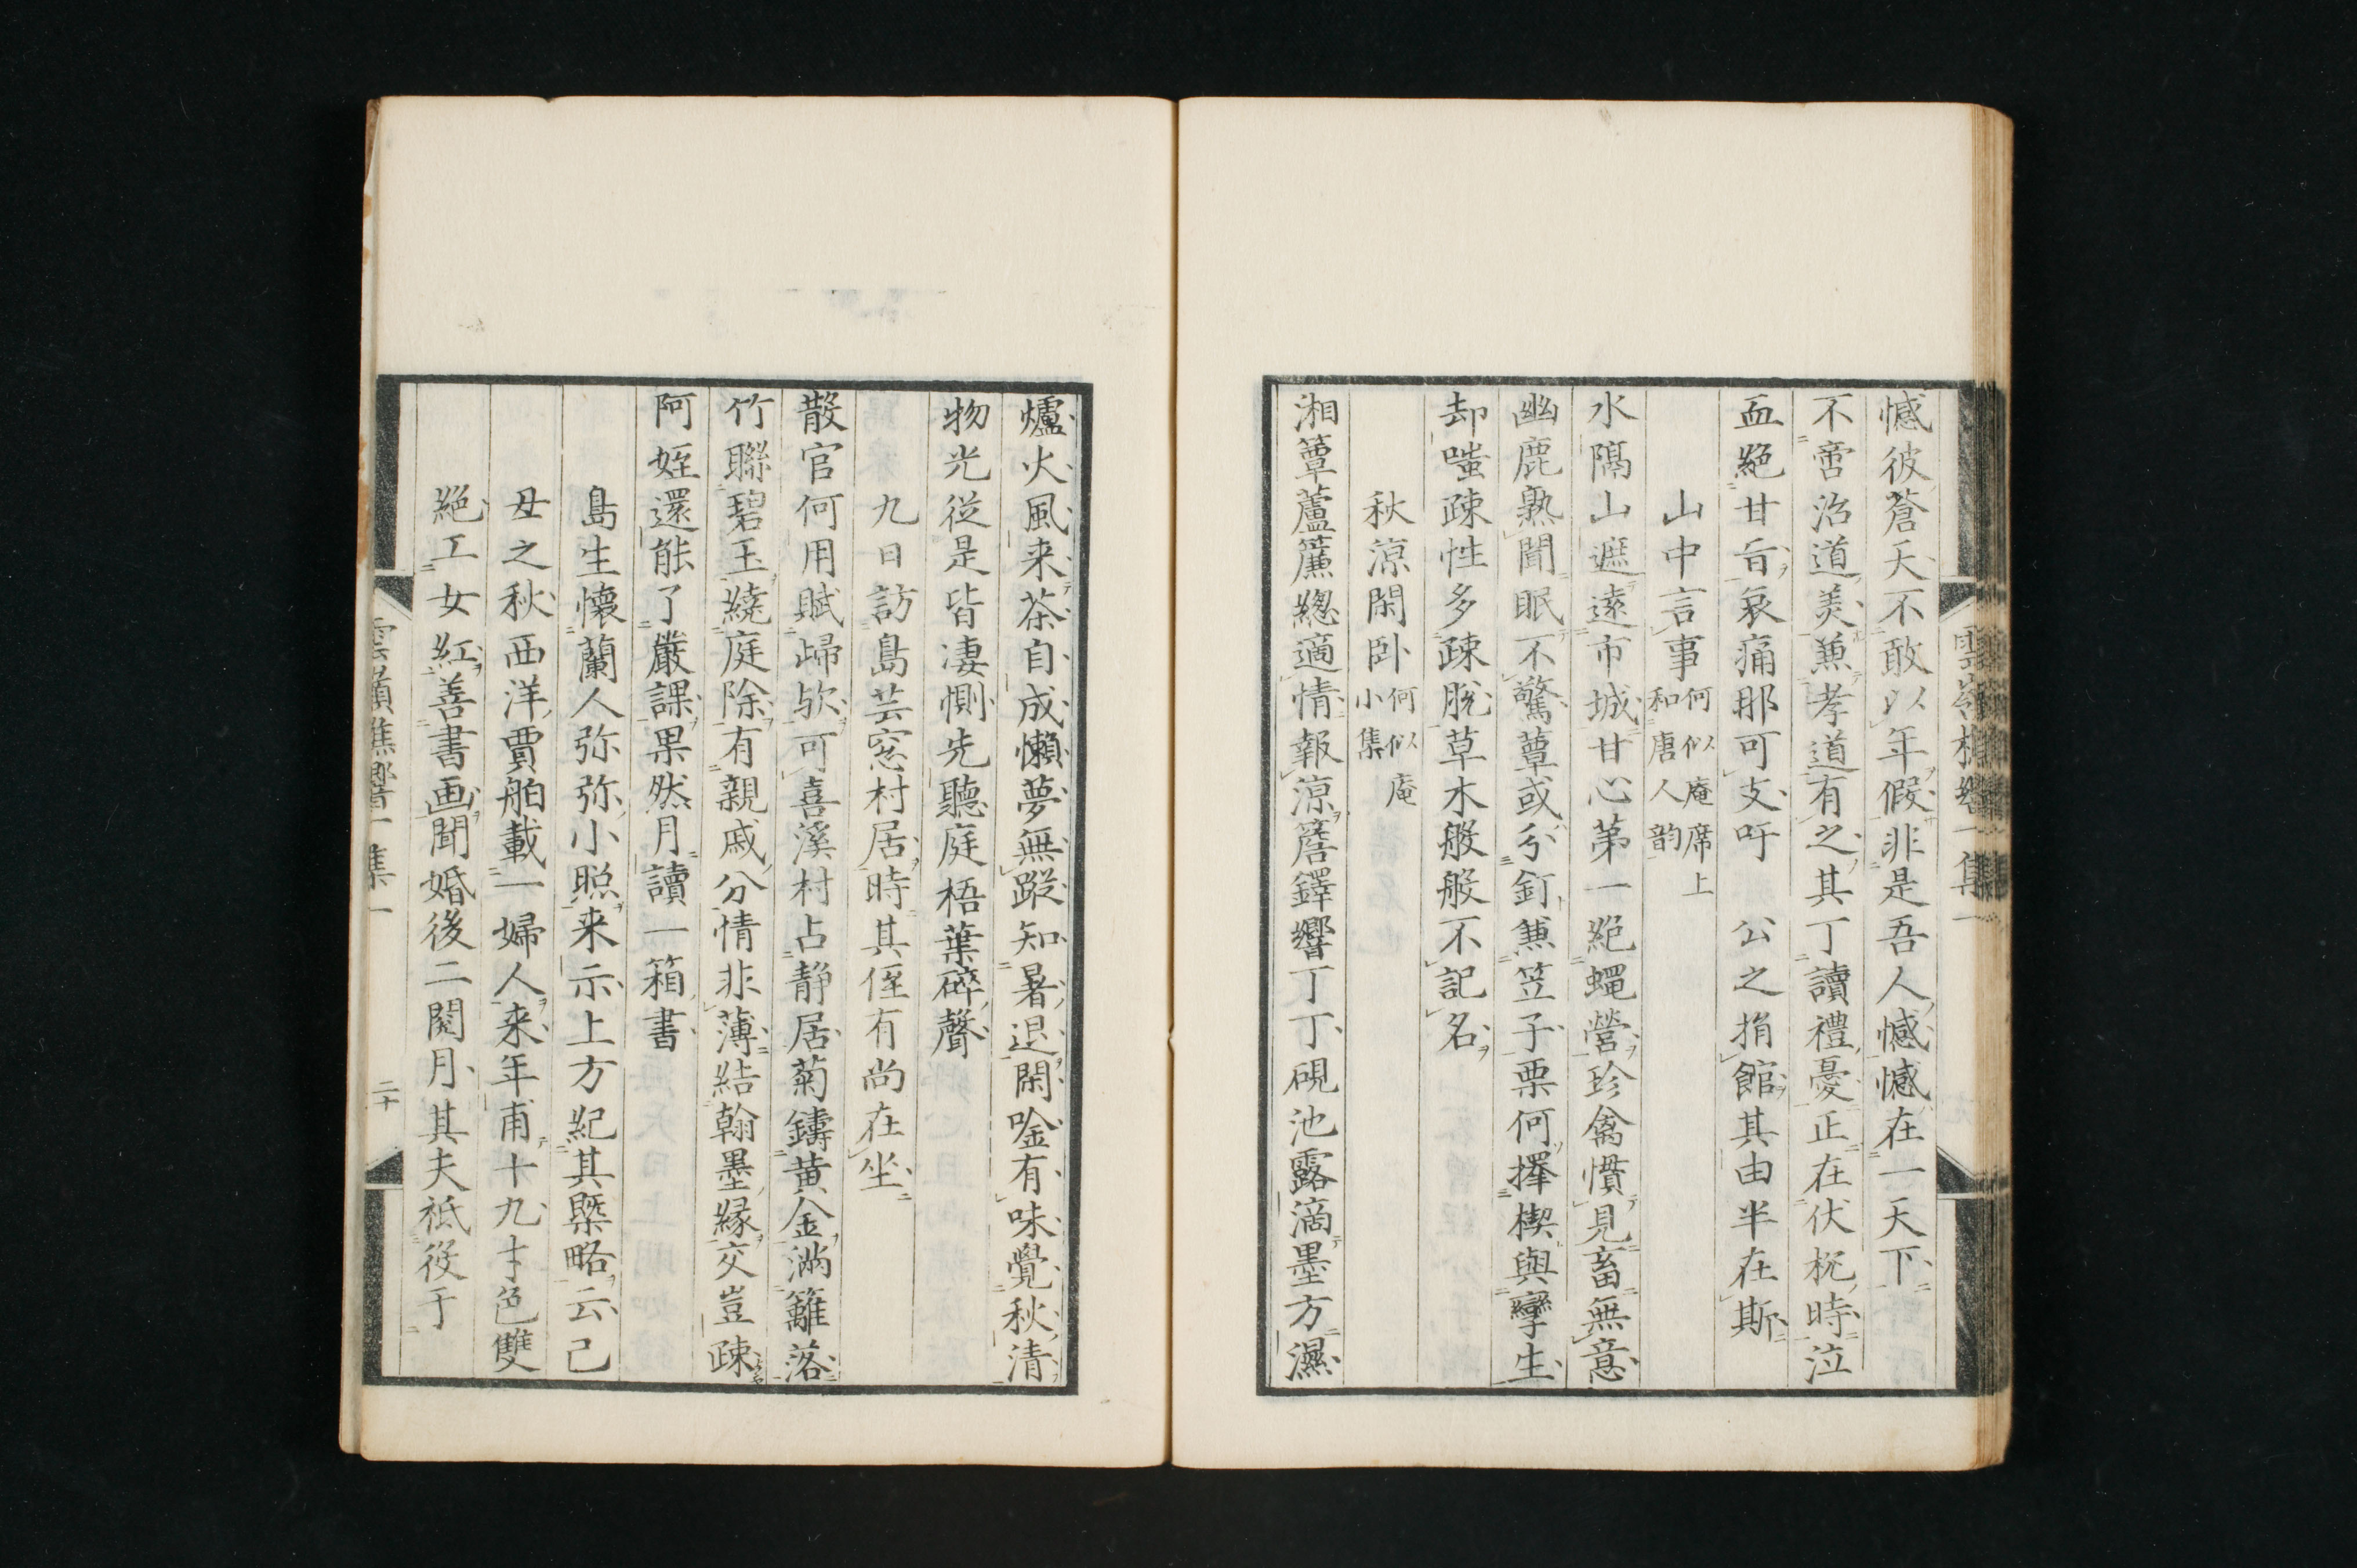 憾彼蒼天不敢以年假非是吾人憾憾在一天下
不啻治道美兼孝道有之其丁讀禮憂正在伏枕時泣
血絕甘旨哀痛那可支吁 公之捐館其由半在斯
山中言事 何似庵席上和唐人韵
水隔山遮遠市城甘心第一絕蠅營珍禽慣見畜無意
幽鹿熟聞眠不驚蕈或分釘兼笠子栗何擇楔與孿生
却嗤疎性多疎脫草木般般不記名
秋涼閑卧 何似庵小集
湘簟蘆簾縂適情報涼簷鐸響丁丁硯池露滴墨方濕
爐火風来茶自成懶夢無蹤知暑退閑唫有味覺秋清
物光從是皆凄惻先聽庭梧葉碎聲
九日訪島芸窓村居時其侄有尚在坐
散官何用賦歸欤可喜溪村占静居菊鑄黄金滿籬落
竹聯碧玉繞庭除有親戚分情非薄結翰墨緣交豈疎
阿姪還能了嚴課果然月讀一箱書
島生懐蘭人弥弥小照来示上方紀其槩略云己
毋之秋西洋賈舶載一婦人来年甫十九才色雙
絕工女紅善書画聞婚後二閲月其夫祗役于
雲嶺樵響一集一 二十